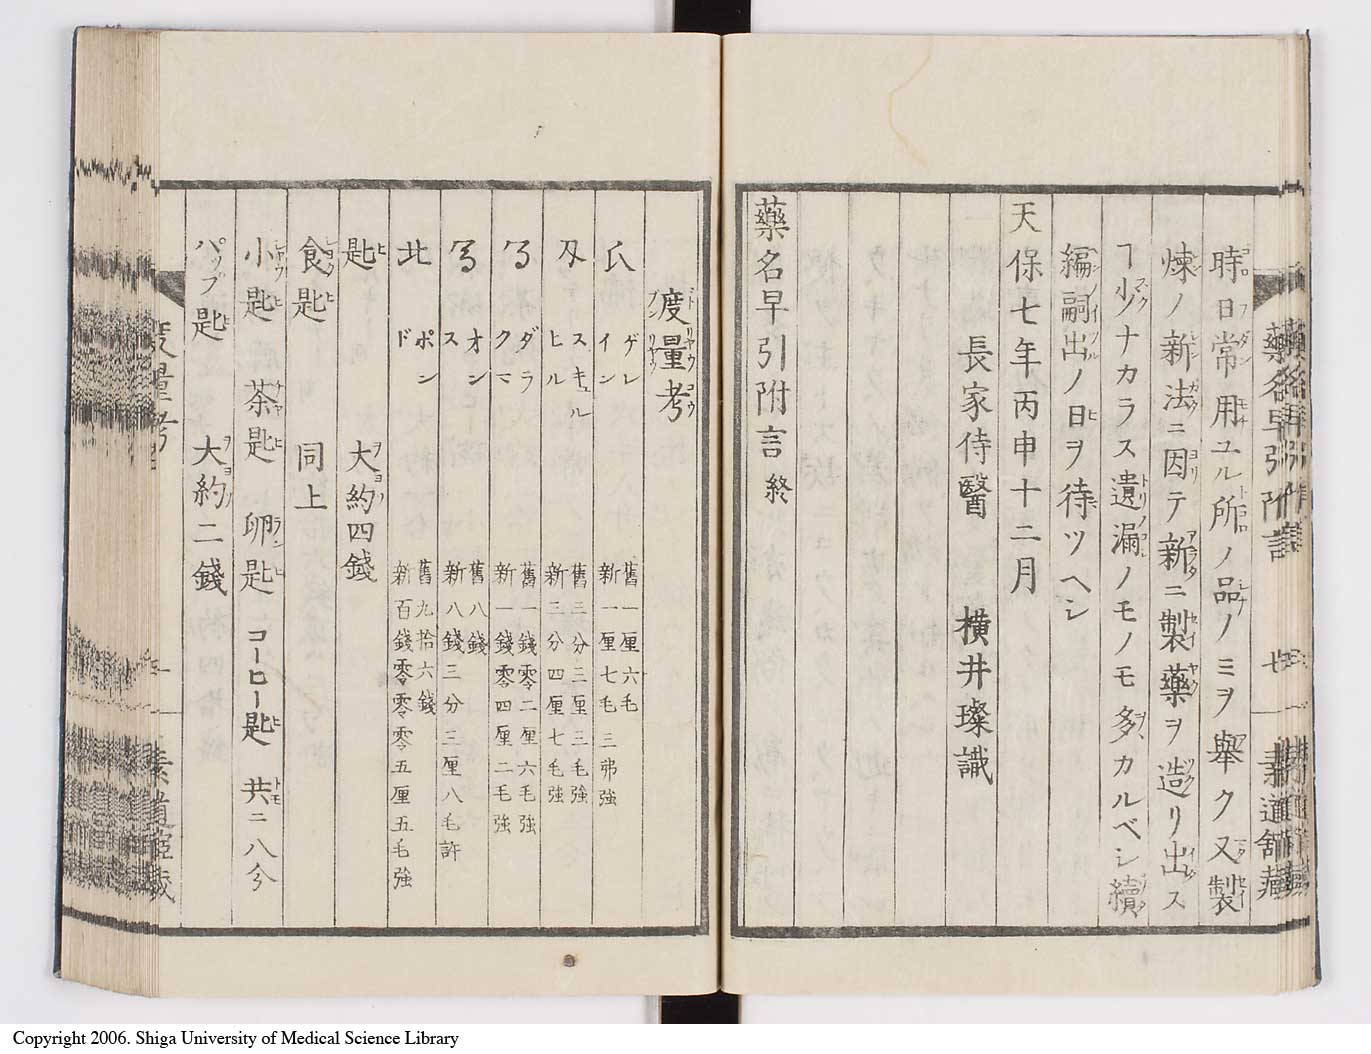 時日常用ユル所ノ品ノミヲ舉ク又製
煉ノ新法ニ因テ新ニ製藥ヲ造リ出ス
ヿ少ナカラス遺漏ノモノモ多カルベシ續
編嗣出ノ日ヲ待ツヘシ
天保七年丙申十二月
長家侍醫 横井璨識
藥名早引附言 終
度量考
氏 ゲレイン 舊一厘六毛 新一厘七毛三弗強
スキュルヒル 舊三分三厘三毛強 新三分四厘七毛強
ダラクマ 舊一錢零二厘六毛強 新一錢零四厘二毛強
オンス 舊八錢 新八錢三分三厘八毛許
ポンド 舊九拾六錢 新百錢零零零五厘五毛強
匙 大約四錢
食匙 同上
小匙 茶匙 卵匙 コーヒー匙 共ニ八分
パップ匙 大約二錢
Copyright 2006. Shiga University of Medical Science Library